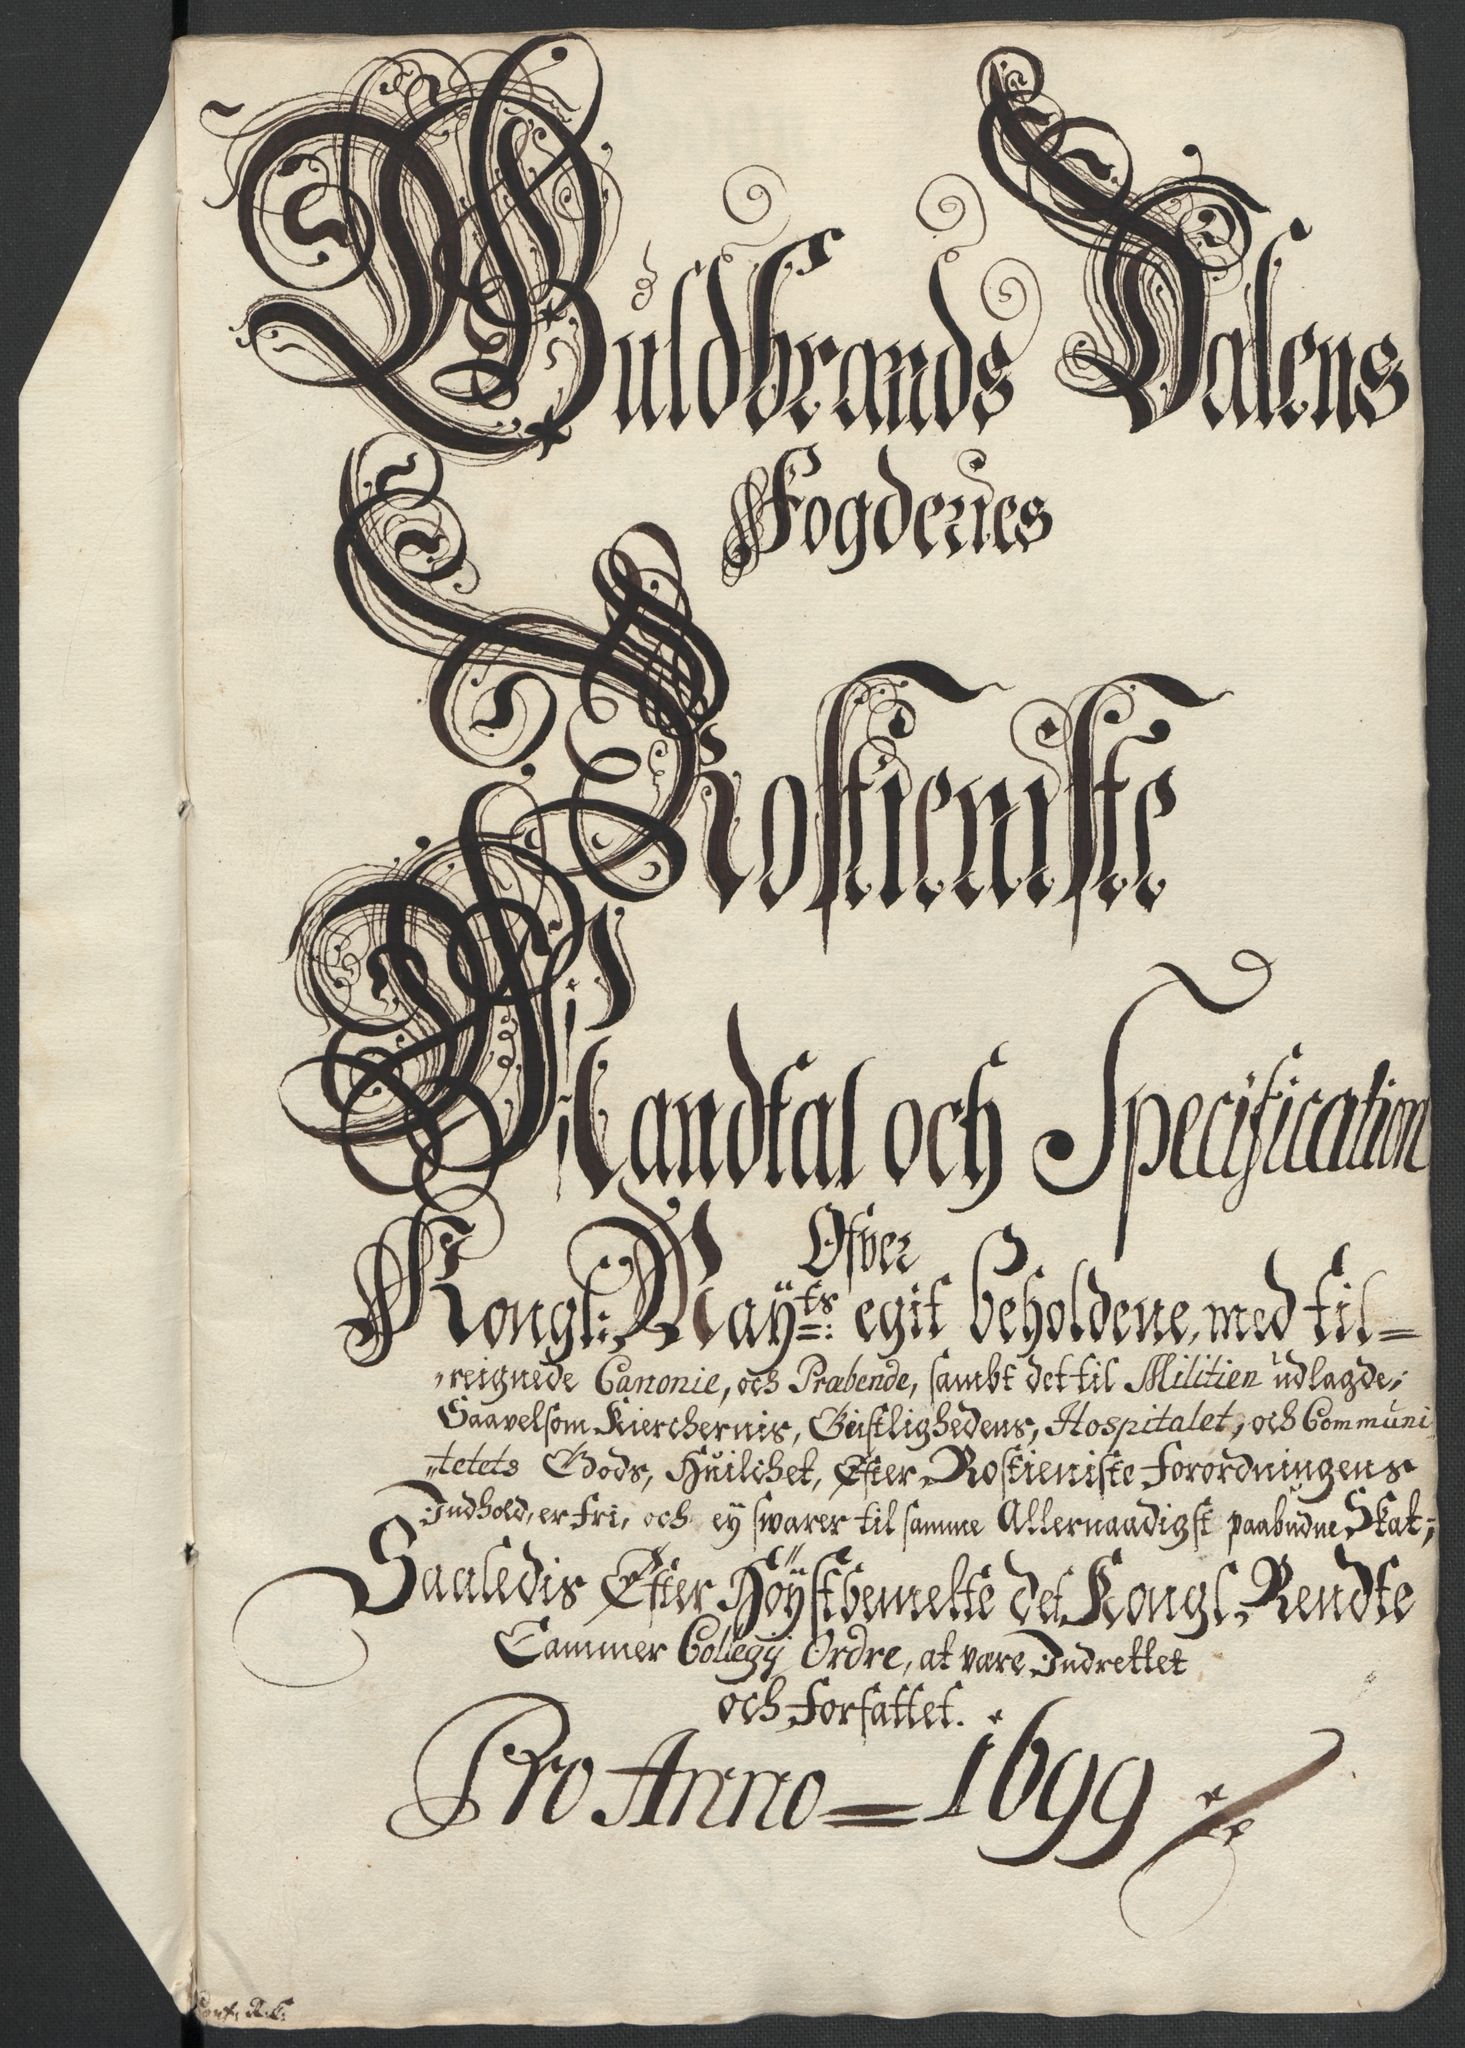 Guldbrands Dalens
Fogderies
Rostieniste
Mandtal och Specification
Ofver
Kongl: Maÿts: egit beholdene, med til=
reignede Canonie, och Præbende, sambt det til Militien udlagde;
Saavelsom Kierchernis, Geistlighedens, Hospitalet, och Communi
tetets Gods, Huilchet, Efter Rostieniste Forordningens
Indhold, er fri, och eÿ swarer til samme Allernaadigst paabudne Skat;
Saaledis Efter Höÿstbemelte det Kongl. Rendte
Cammer Collegij Ordre, at være Indrettet
och Forfattet.
Pro Anno = 1699